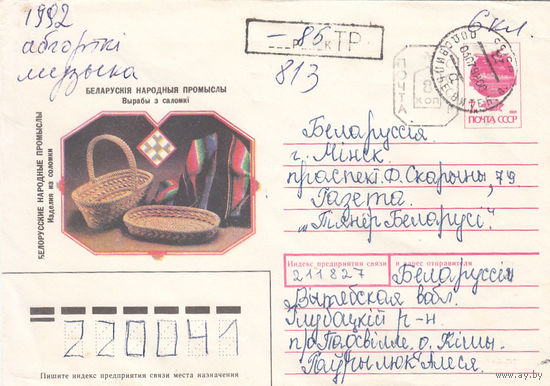 1992
абгорткі
музыка
6 кл.
- 85 ТР
813
ПОЧТА
8
КОП
ПОЧТА СССР
БЕЛАРУСКІЯ НАРОДНЫЯ ПРОМЫСЛЫ
Вырабы з саломкі
БЕЛОРУССКИЕ НАРОДНЫЕ ПРОМЫСЛЫ
Изделия из соломки
Беларуссія
г. Мінск.
проспект Ф. Скарыны, 79
Газета
"Піянер Беларусі"
Индекс предприятия связи и адрес отправителя
211827 Беларуссія
Вытебская вобл.
Глубацкій р-н
п/о Падсвілле д. Кімы
Гаўрылюк Алеся.
220041
Пишите индекс предприятия связи места назначения
www.ay.by